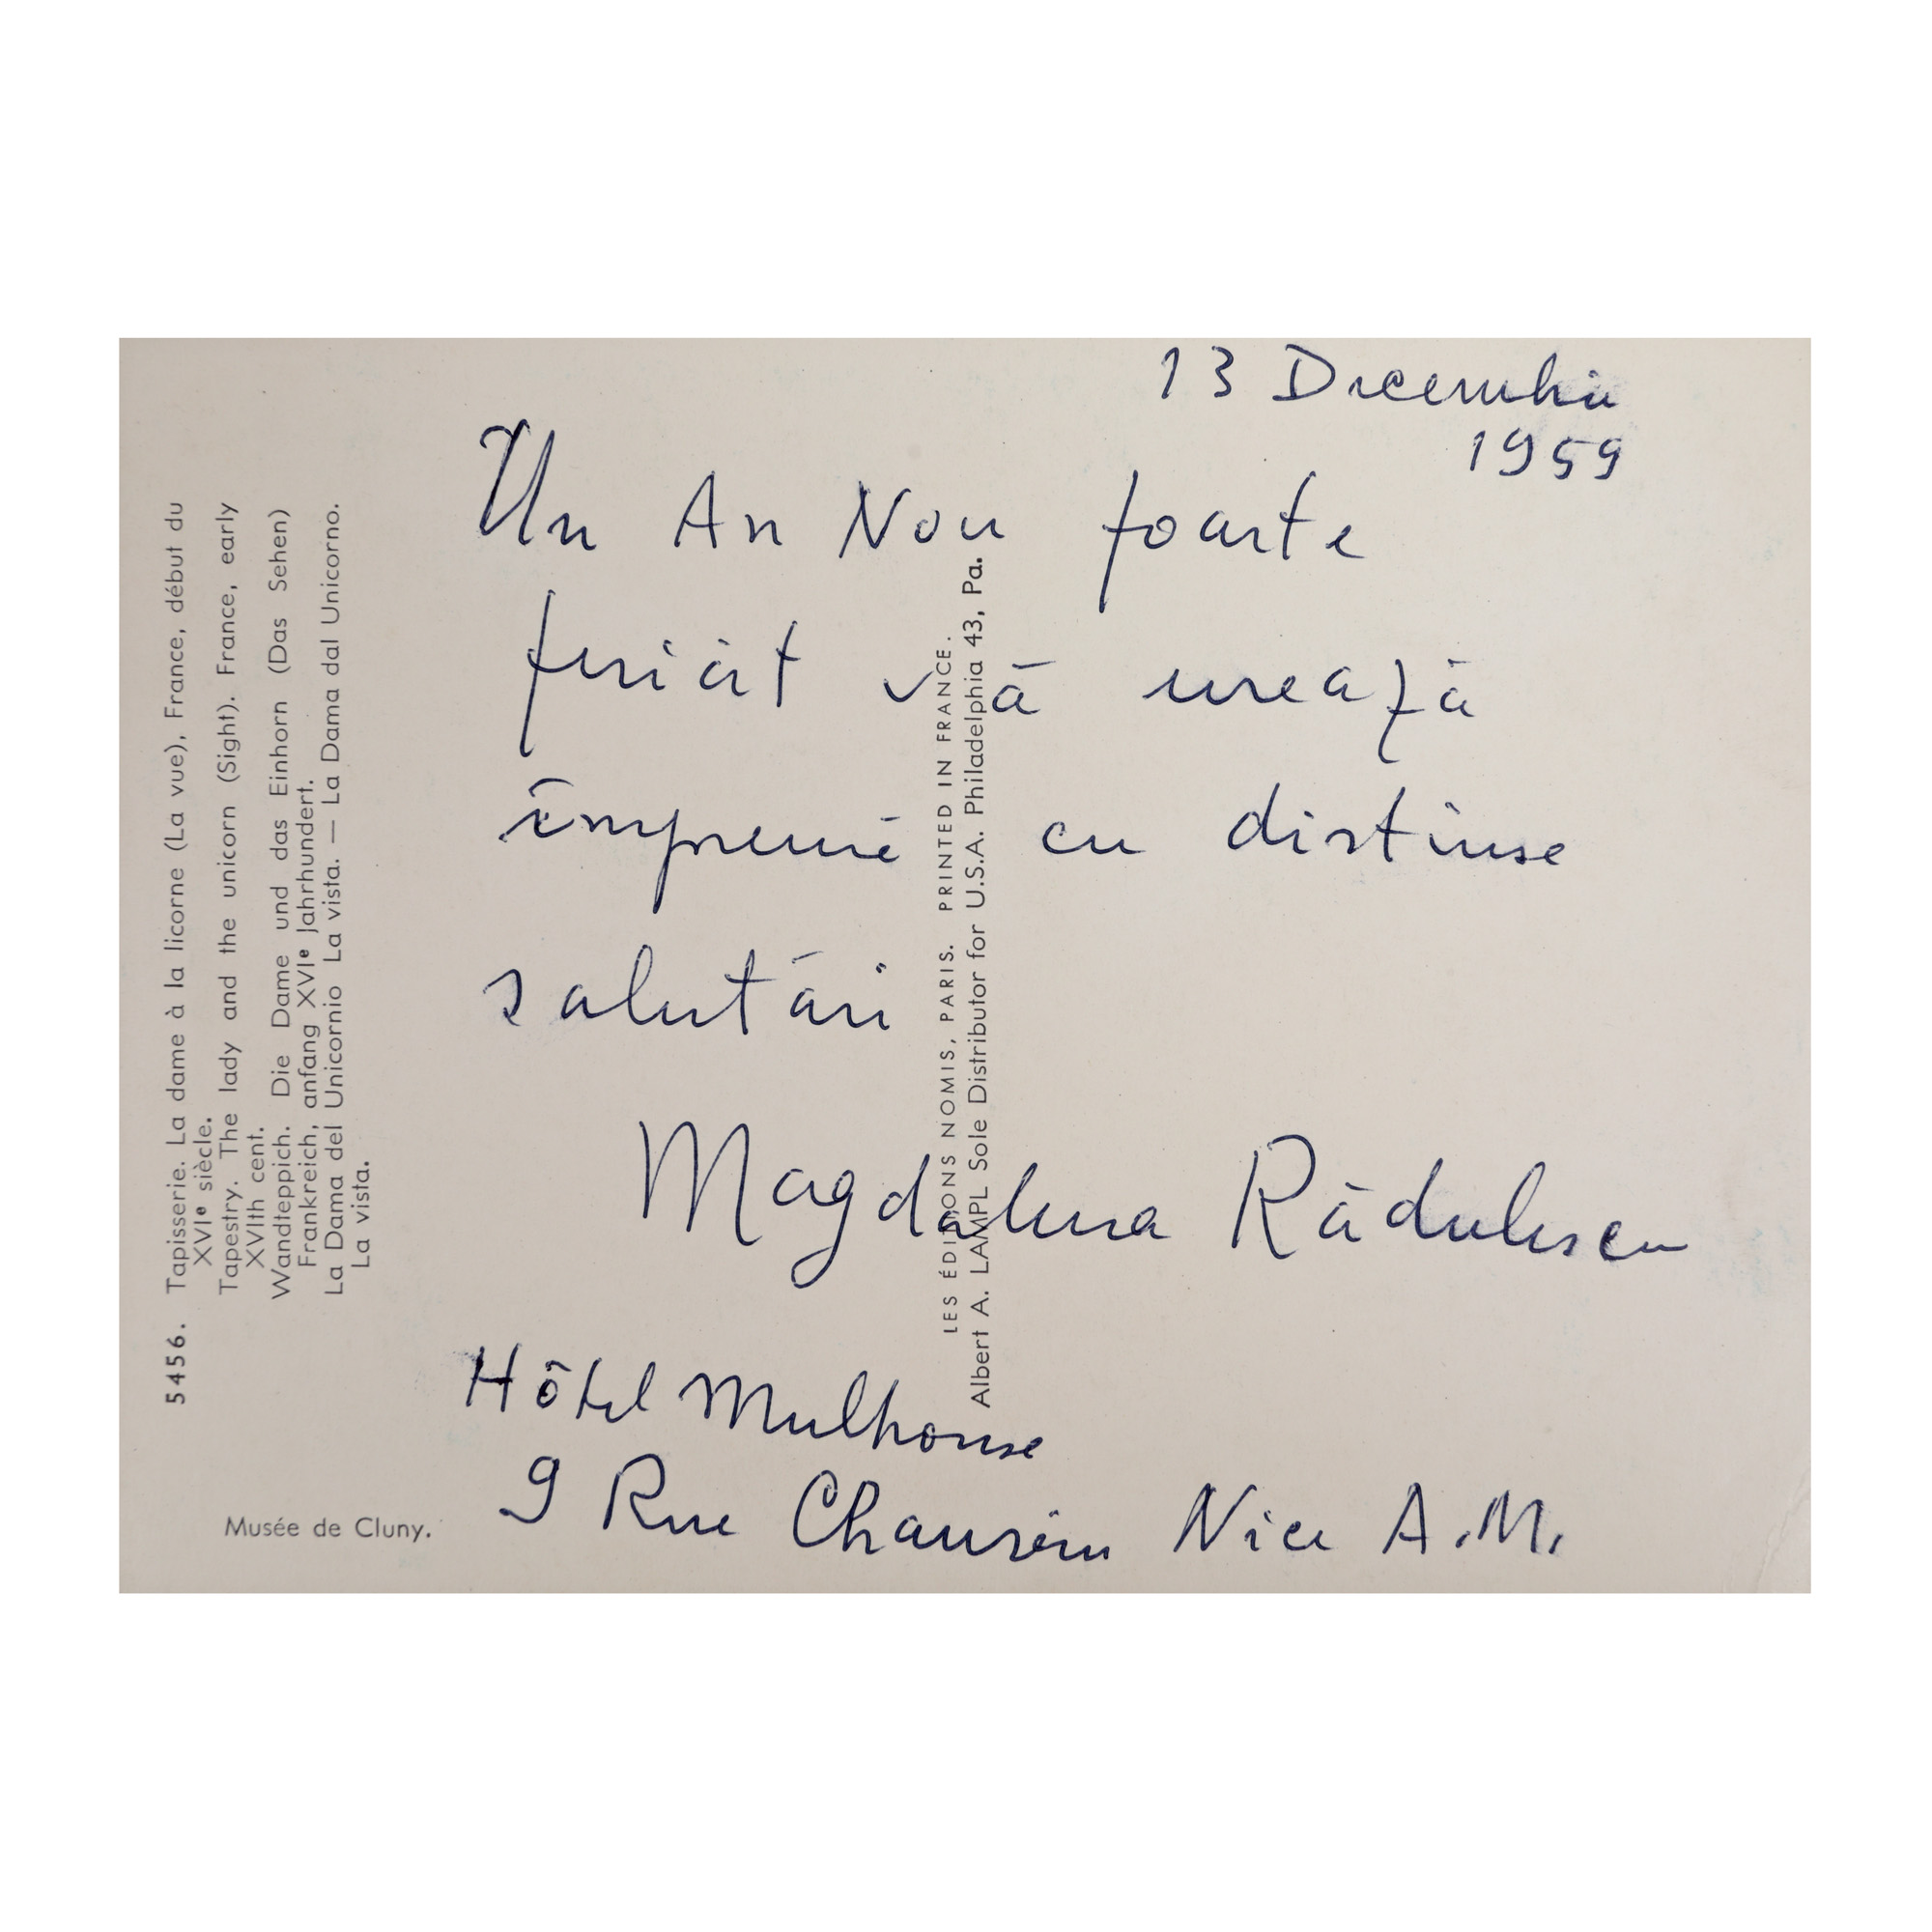 13 Decembrie
1959
Un An Nou foarte
fericit vă urează
împreună cu distinse
salutări
Magdalena Rădulescu
Hôtel Mulhouse
9 Rue Chauvain Nice A.M.
5456. Tapisserie. La dame à la licorne (La vue), France, début du
XVIᵉ siècle.
Tapestry. The lady and the unicorn (Sight). France, early
XVIth cent.
Wandteppich. Die Dame und das Einhorn (Das Sehen)
Frankreich, anfang XVIᵉ Jahrhundert.
La Dama del Unicornio La vista. — La Dama dal Unicorno.
La vista.
Musée de Cluny.
LES ÉDITIONS NOMIS, PARIS. PRINTED IN FRANCE.
Albert A. LAMPL Sole Distributor for U.S.A. Philadelphia 43, Pa.